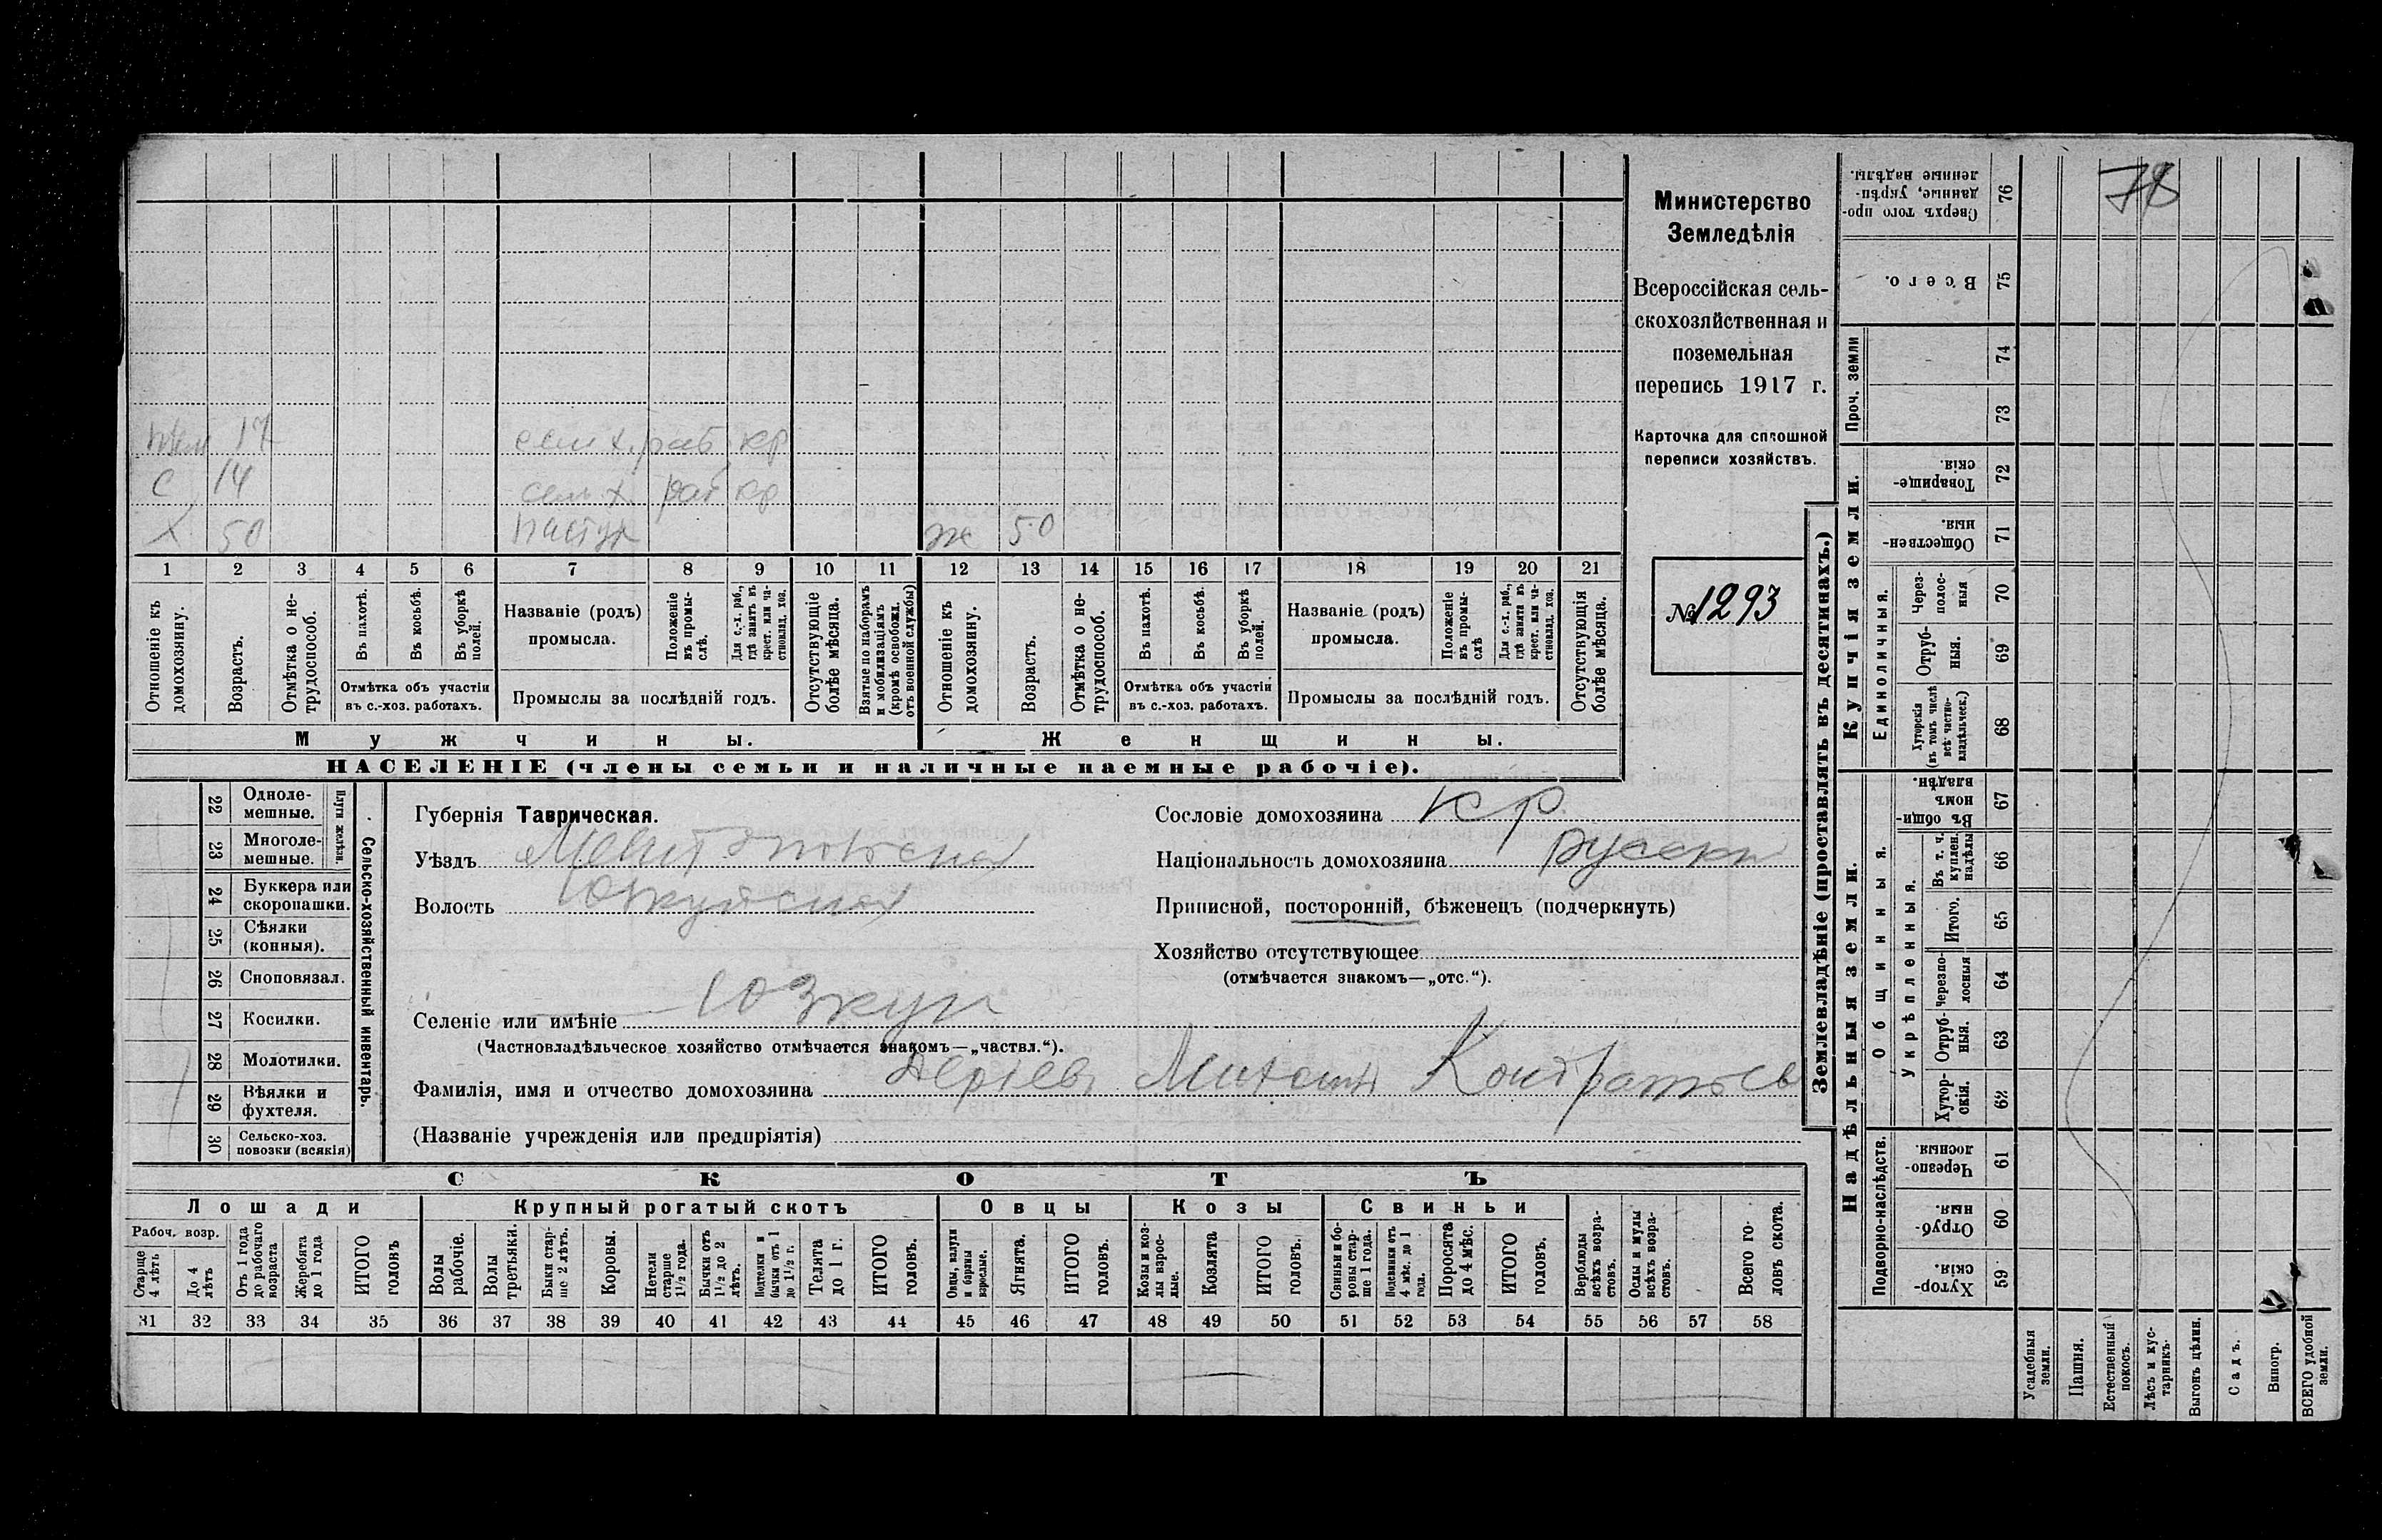 Министерство
Земледѣлія
Всероссійская сель-
скохозяйственная и
поземельная
перепись 1917 г.
Карточка для сплошной
переписи хозяйствъ.
№ 1293
78
17 сел х. раб кр
С 14 сель х. раб кр
Х 50 пастух ж 50
1 2 3 4 5 6 7 8 9 10 11 12 13 14 15 16 17 18 19 20 21
Отношеніе къ домохозяину.
Возрастъ.
Отмѣтка о не-трудоспособ.
Въ пахотѣ.
Въ косьбѣ.
Въ уборкѣ полей.
Отмѣтка объ участіи въ с.-хоз. работахъ.
Названіе (родъ) промысла.
Положеніе въ промы-слѣ.
Для с.-х. раб., гдѣ занятъ въ крест. или ча-стновлад. хоз.
Промыслы за послѣдній годъ.
Отсутствующіе болѣе мѣсяца.
Взятые по наборамъ и мобилизаціямъ (кромѣ освобожд. отъ военной службы)
Отношеніе къ домохозяину.
Возрастъ.
Отмѣтка о не-трудоспособ.
Въ пахотѣ.
Въ косьбѣ.
Въ уборкѣ полей.
Отмѣтка объ участіи въ с.-хоз. работахъ.
Названіе (родъ) промысла.
Положеніе въ промы-слѣ
Для с.-х. раб., гдѣ занята въ крест. или ча-стновлад. хоз.
Промыслы за послѣдній годъ.
Отсутствующія болѣе мѣсяца.
Мужчины. Женщины.
НАСЕЛЕНІЕ (члены семьи и наличные наемные рабочіе).
22 Одноле-мешные.
23 Многоле-мешные.
Плуги желѣзн.
24 Буккера или скоропашки.
25 Сѣялки (конныя).
26 Сноповязал.
27 Косилки.
28 Молотилки.
29 Вѣялки и фухтеля.
30 Сельско-хоз. повозки (всякія)
Сельско-хозяйственный инвентарь.
Губернія Таврическая.
Уѣздъ
Волость
Селеніе или имѣніе Юзкуи
(Частновладѣльческое хозяйство отмѣчается знакомъ—„частвл.“).
Фамилія, имя и отчество домохозяина
(Названіе учрежденія или предпріятія)
Сословіе домохозяина кр.
Національность домохозяина русски
Приписной, посторонній, бѣженецъ (подчеркнуть)
Хозяйство отсутствующее
(отмѣчается знакомъ—„отс.“).
СКОТЪ
Лошади Крупный рогатый скотъ Овцы Козы Свиньи
Рабоч. возр.
Старше 4 лѣтъ
До 4 лѣтъ
Отъ 1 года до рабочаго возраста
Жеребята до 1 года
ИТОГО головъ
Волы рабочіе.
Волы третьяки.
Быки стар-ше 2 лѣтъ.
Коровы.
Нетели старше 1½ года.
Бычки отъ 1½ до 2 лѣтъ.
Подтелки и бычки отъ 1 до 1½ г.
Телята до 1 г.
ИТОГО головъ.
Овцы, валухи и бараны взрослые.
Ягнята.
ИТОГО головъ.
Козы и коз-лы взрос-лые.
Козлята
ИТОГО головъ.
Свиньи и бо-ровы стар-ше 1 года.
Подсвинки отъ 4 мѣс. до 1 года.
Поросята до 4 мѣс.
ИТОГО головъ.
Верблюды всѣхъ возра-стовъ.
Ослы и мулы всѣхъ возра-стовъ.
Всего го-ловъ скота.
31 32 33 34 35 36 37 38 39 40 41 42 43 44 45 46 47 48 49 50 51 52 53 54 55 56 57 58
Землевладѣніе (проставлять въ десятинахъ.)
Купчія земли.
Надѣльныя земли.
Сверхъ того про-данные, укрѣп-ленные надѣлы. 76
Всего. 75
Проч. земли 74 73
Товарище-скія. 72
Обществен-ныя. 71
Единоличныя.
Через-полос-ныя 70
Отруб-ныя. 69
Хуторскія (въ томъ числѣ всѣ частно-владѣльческ.) 68
Общинныя.
Въ общин-номъ владѣн. 67
Укрѣпленныя.
Въ т. ч. куплен. надѣлы 66
Итого. 65
Черезпо-лосныя 64
Отруб-ныя. 63
Хутор-скія. 62
Подворно-наслѣдств.
Черезпо-лосныя 61
Отруб-ныя. 60
Хутор-скія. 59
Усадебныя земли.
Пашня.
Естественный покосъ.
Лѣсъ и кус-тарникъ.
Выгонъ цѣлин.
Садъ.
Виногр.
ВСЕГО удобной земли.